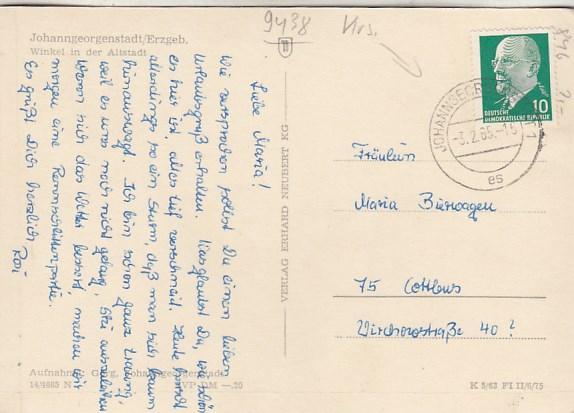 9438 Virs.
8496 2,-
Johanngeorgenstadt/Erzgeb.
Winkel in der Altstadt
Liebe Maria!
Wie versprochen sollst Du einen lieben
Urlaubsgruß erhalten. Was glaubst Du, wie schön
es hier ist, alles tief verschneit. Heute herrscht
allerdings so ein Sturm, daß man sich kaum
hinauswagt. Ich bin schon ganz traurig,
weil es uns noch nicht gelang, Ski auszuleihen
Wenn sich das Wetter bessert, machen wir
morgen eine Rennschlittenpartie.
Es grüßt Dich herzlich
Aufnahme: Gürg, Johanngeorgenstadt
14/4685 N EVP DM -.20
VERLAG ERHARD NEUBERT KG
DEUTSCHE
DEMOKRATISCHE REPUBLIK
10
JOHANNGEORGEN
-3.2.65.-15
es
Fräulein
Maria Bierwagen
75 Cottbus
Virchowstraße 40?
K 5/63 Fl II/6/75